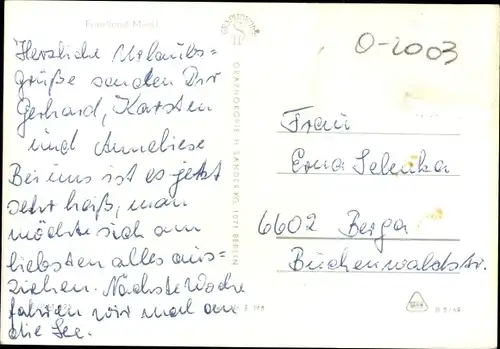 Herzliche Urlaubs-
grüße senden Dir
Gerhard, Karsten
und Anneliese
Bei uns ist es jetzt
sehr heiß, man
möchte sich am
liebsten alles aus-
ziehen. Nächste Woche
fahren wir mal an
die See.
0-2003
Frau
Erna Selenka
6602 Berga
Buchenwaldstr.
GRAPHOKOPIE H. SANDER KG, 1071 BERLIN